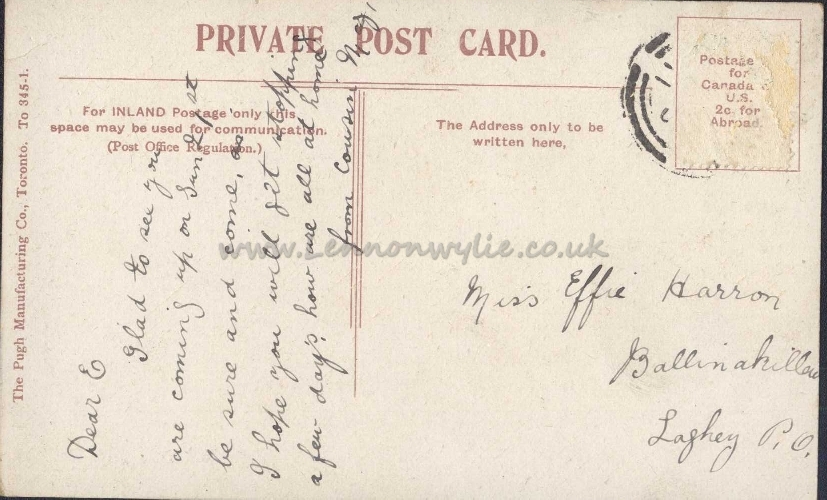 PRIVATE POST CARD.
Postage
for
Canada &
U.S.
2c. for
Abroad.
For INLAND Postage only this
space may be used for communication.
(Post Office Regulation.)
The Address only to be
written here,
The Pugh Manufacturing Co., Toronto. To 345-1.
Dear E
Glad to see you
are coming up on Sun 21st
be sure and come, as
I hope you will get stopping
a few day's how are all at home
from Cousin
Miss Effie Harron
Ballinakillew
Laghey P.O.
www.Lennonwylie.co.uk